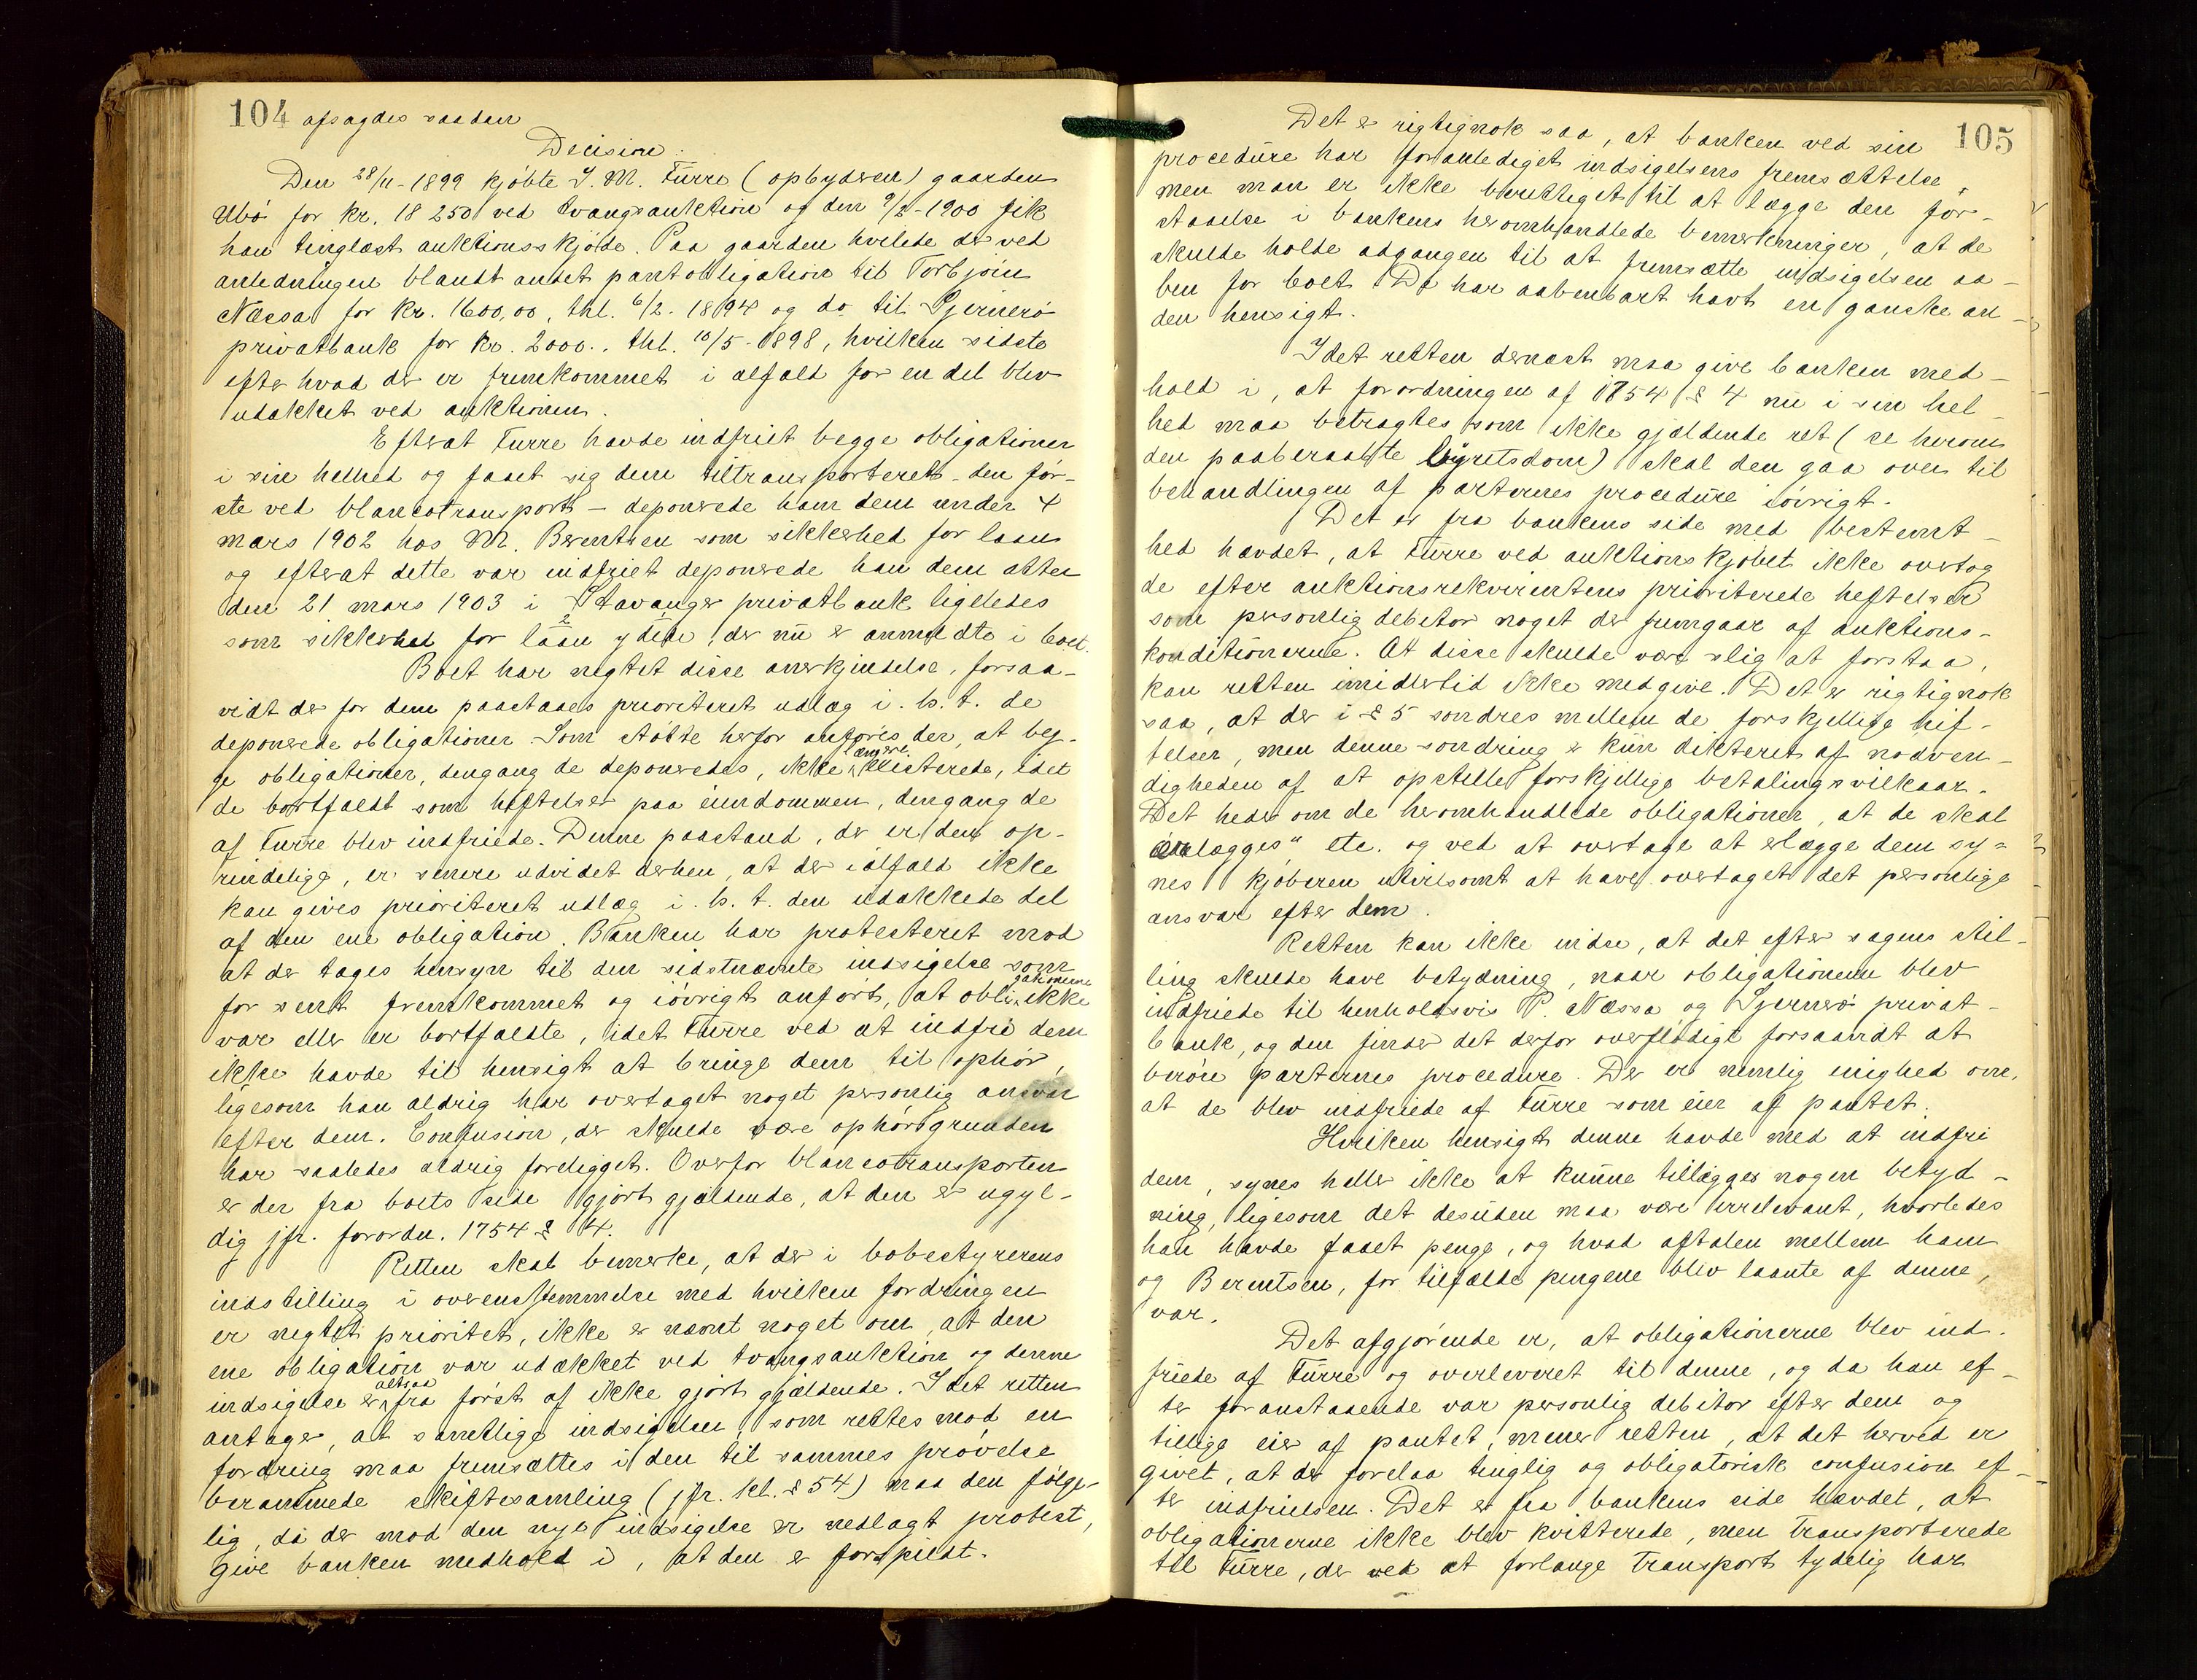 104 afsagdes saadan
Decision:
Den 28/11-1899 kjøbte I. M. Furre (opbyderen) gaarden
Ubø for kr. 18 250 ved tvangsauktion og den 9/2-1900 fik
han tinglæst auktionsskjøde. Paa gaarden hvilede der ved
anledningen blandt andet pantobligation til Torbjøin
Næssa for kr. 1600,00, thl. 6/2-1894 og do til Sjernerø
privatbank for kr. 2000., thl. 10/5-1898, hvilken sidste
efter hvad der er fremkommet i alfald for en del blev
udækket ved auktionen.
Efterat Furre havde indfriet begge obligationer
i sin helhed og faaet sig dem tiltransporteret - den før-
ste ved blancotransport - deponerede han dem under 4
mars 1902 hos M. Berentsen som sikkerhed for laan
og efterat dette var indfriet deponerede han dem atter
den 21 mars 1903 i Stavanger privatbank ligeledes
som sikkerhed for 2 laan ydede, der nu er anmeldte i boet.
Boet har negtet disse anerkjendelse, forsaa-
vidt der for dem paastaaes prioriteret udlæg i. h. t. de
deponerede obligationer. Som støtte herfor anføres der, at beg-
ge obligationer, dengang de deponeredes, ikke længere existerede, idet
de bortfaldt som heftelser paa eiendommen, dengang de
af Furre blev indfriede. Denne paastand, der er den op-
rindelige, er senere udvidet derhen, at der ialfald ikke
kan gives prioriteret udlæg i. h. t. den udækkede del
af den ene obligation. Banken har protesteret mod
at der tages hensyn til den sidstnævnte indsigelse som
for sent fremkommet og iøvrigt anført, at obligationerne ikke
var eller er bortfaldte, idet Furre ved at indfri dem
ikke havde til hensigt at bringe dem til ophør,
ligesom han aldrig har overtaget noget personlig ansvar
efter dem. Confusion, der skulde være ophørsgrunden
har saaledes aldrig foreligget. Overfor blancotransporten
er der fra boets side gjort gjældende, at den er ugyl-
dig jfr. forordn. 1754 § 4.
Retten skal bemerke, at der i bobestyrerens
indstilling i overensstemmelse med hvilken fordringen
er negtet prioritet, ikke er nævnt noget om, at den
ene obligation var udækket ved tvangsauktion og denne
indsigelse er altsaa fra først af ikke gjort gjældende. Idet retten
antager, at samtlige indsigelser, som rettes mod en
fordring maa fremsættes i den til sammes prøvelse
berammede skiftesamling (jfr. kl. § 54) maa den følge-
lig, da der mod den nye indsigelse er nedlagt protest,
give banken medhold i, at den er forspildt.
105
Det er rigtignok saa, at banken ved sin
procedure har foranlediget indsigelsens fremsættelse,
men man er ikke berettiget til at lægge den for-
staaelse i bankens heromhandlede bemerkninger, at de
skulde holde adgangen til at fremsætte indsigelsen aa-
ben for boet. De har aabenbart havt en ganske an-
den hensigt.
Idet retten dernæst maa give banken med-
hold i, at forordningen af 1754 § 4 nu i sin hel-
hed maa betragtes som ikke gjældende ret (se herom
den paaberaabte byretsdom) skal den gaa over til
behandlingen af parternes procedure iøvrigt.
Det er fra bankens side med bestemt-
hed hævdet, at Furre ved auktionskjøbet ikke overtog
de efter auktionsrekvirentens prioriterede heftelser
som personlig debitor noget der fremgaar af auktions-
konditionerne. At disse skulde være slig at forstaa,
kan retten imidlertid ikke medgive. Det er rigtignok
saa, at der i § 5 sondres mellem de forskjellige hef-
telser, men denne sondring er kun dikteret af nødven-
digheden af at opstille forskjellige betalingsvilkaar.
Det heder om de heromhandlede obligationer, at de skal
"erlægges" etc. og ved at overtage at erlægge dem sy-
nes kjøberen utvilsomt at have overtaget det personlige
ansvar efter dem.
Retten kan ikke indse, at det efter sagens stil-
ling skulde have betydning, naar obligationerne blev
indfriede til henholdsvis P. Næssa og Sjernerø privat-
bank, og den finder det derfor overflødigt forsaavidt at
berøre parternes procedure. Der er nemlig enighed om,
at de blev indfriede af Furre som eier af pantet.
Hvilken hensigt denne havde med at indfri
dem, synes heller ikke at kunne tillægges nogen betyd-
ning, ligesom det desuden maa være irrelevant, hvorledes
han havde faaet penge, og hvad aftalen mellem ham
og Berentsen, for tilfælde pengene blev laante af denne,
var.
Det afgjørende er, at obligationerne blev ind-
friede af Furre og overleveret til denne, og da han ef-
ter foranstaaende var personlig debitor efter dem og
tillige eier af pantet, mener retten, at det herved er
givet, at der forelaa tinglig og obligatorisk confusion ef-
ter indfrielsen. Det er fra bankens side hævdet, at
obligationerne ikke blev kvitterede, men transporterede
til Furre, der ved at forlange transport tydelig har